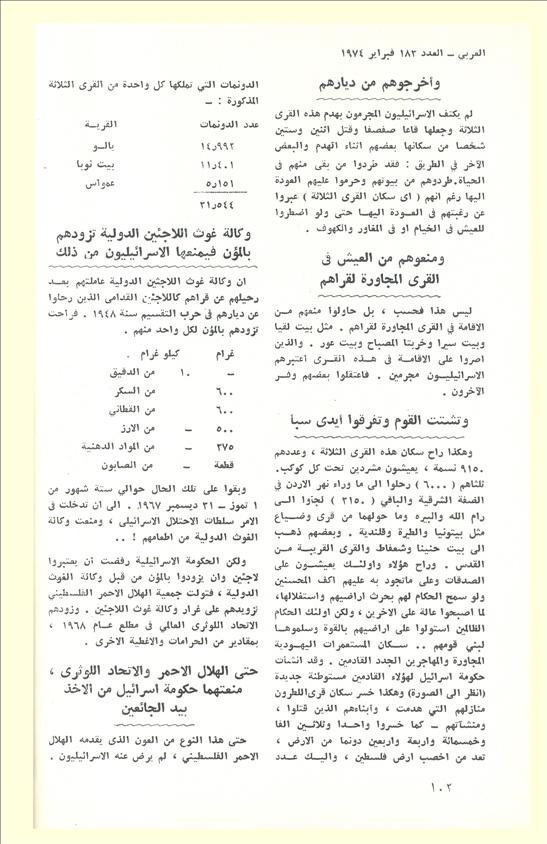 العربي ــ العدد ١٨٣ فبراير ١٩٧٤
وأخرجوهم من ديارهم
لم يكتف الاسرائيليون المجرمون بهدم هذه القرى
الثلاثة وجعلها قاعا صفصفا وقتل اثنين وستين
شخصا من سكانها بعضهم اثناء الهدم والبعض
الآخر في الطريق : فقد طردوا من بقى منهم فى
الحياة. طردوهم من بيوتهم وحرموا عليهم العودة
اليها رغم انهم ( اى سكان القرى الثلاثة ) عبروا
عن رغبتهم فى العودة اليها حتى ولو اضطروا
للعيش فى الخيام او فى المغاور والكهوف .
ومنعوهم من العيش فى
القرى المجاورة لقراهم
ليس هذا فحسب ، بل حاولوا منعهم من
الاقامة في القرى المجاورة لقراهم . مثل بيت لقيا
وبيت سيرا وخربتا المصباح وبيت عور . والذين
اصروا على الاقامة فى هذه القرى أعتبرهم
الاسرائيليون مجرمين . فاعتقلوا بعضهم وفر
الآخرون .
وتشتت القوم وتفرقوا أيدى سبأ
وهكذا راح سكان هذه القرى الثلاثة ، وعددهم
٩١٥٠ نسمة ، يعيشون مشردين تحت كل كوكب.
ثلثاهم ( ٦٠٠٠ ) رحلوا الى ما وراء نهر الاردن في
الضفة الشرقية والباقي ( ٣١٥٠ ) لجأوا الى
رام الله والبيره وما حولهما من قرى وضياع
مثل بيتونيا والطيرة وقلندية . وبعضهم ذهب
الى بيت حنينا وشعفاط والقرى القريبة من
القدس . وراح هؤلاء واولئك يعيشون على
الصدقات وعلى ماتجود به عليهم اكف المحسنين
ولو سمح الحكام لهم بحرث اراضيهم واستغلالها،
لما اصبحوا عالة على الاخرين ، ولكن اولئك الحكام
الظالمين استولوا على اراضيهم بالقوة وسلموها
لبني قومهم .. سكان المستعمرات اليهودية
المجاورة والمهاجرين الجدد القادمين . وقد انشأت
حكومة اسرائيل لهؤلاء القادمين مستوطنة جديدة
(انظر الى الصورة) وهكذا خسر سكان قرى اللطرون
منازلهم التي هدمت ، وأبناءهم الذين قتلوا ،
ومنشآتهم ــ كما خسروا واحدا وثلاثين الفا
وخمسمائة واربعة واربعين دونما من الارض ،
تعد من اخصب ارض فلسطين ، واليك عدد
الدونمات التي تملكها كل واحدة من القرى الثلاثة
المذكورة : ــ
عدد الدونمات القرية
١٤ر٩٩٢ يالو
١١ر٤٠١ بيت نوبا
٥ر١٥١ عمواس
٣١ر٥٤٤
وكالة غوث اللاجئين الدولية تزودهم
بالمؤن فيمنعها الاسرائيليون من ذلك
ان وكالة غوث اللاجئين الدولية عاملتهم بعد
رحيلهم عن قراهم كاللاجئين القدامى الذين رحلوا
عن ديارهم في حرب التقسيم سنة ١٩٤٨ . فراحت
تزودهم بالمؤن لكل واحد منهم .
غرام كيلو غرام .
ــ ١٠ من الدقيق
٦٠٠ من السكر
٦٠٠ من القطاني
٥٠٠ ــ من الارز
٣٧٥ ــ من المواد الدهنية
قطعة ــ من الصابون
وبقوا على تلك الحال حوالي ستة شهور من
١ تموز ــ ٣١ ديسمبر ١٩٦٧. الى ان تدخلت في
الامر سلطات الاحتلال الاسرائيلى ، ومنعت وكالة
الغوث الدولية من اطعامهم ! ..
ولكن الحكومة الاسرائيلية رفضت أن يعتبروا
لاجئين وان يزودوا بالمؤن من قبل وكالة الغوث
الدولية ، فتولت جمعية الهلال الاحمر الفلسطيني
تزويدهم على غرار وكالة غوث اللاجئين . وزودهم
الاتحاد اللوثرى العالمي فى مطلع عام ١٩٦٨ ،
بمقادير من الحرامات والاغطية الاخرى .
حتى الهلال الاحمر والاتحاد اللوثرى ،
منعتهما حكومة اسرائيل من الاخذ
بيد الجائعين
حتى هذا النوع من العون الذى يقدمه الهلال
الاحمر الفلسطيني ، لم يرض عنه الاسرائيليون .
١٠٢